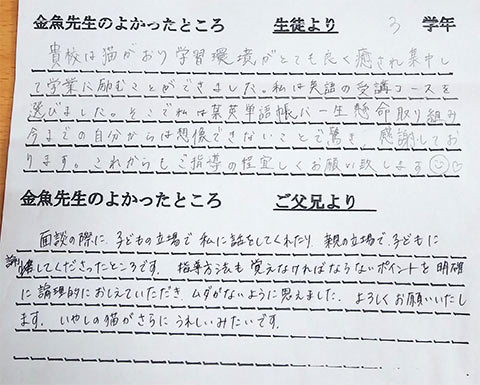 金魚先生のよかったところ 生徒より 3 学年
貴校は猫がおり学習環境がとても良く癒され集中し
て学業に励むことができました。私は英語の受講コースを
選びました。そこで私は某英単語帳に一生懸命取り組み
今までの自分からは想像できないことで驚き、感謝してお
ります。これからもご指導の程宜しくお願い致します
金魚先生のよかったところ ご父兄より
面談の際に、子どもの立場で私に話をしてくれたり、親の立場で子どもに
諭してくださったところです。指導方法も覚えなければならないポイントを明確
に論理的におしえていただき、ムダがないように思えました。よろしくお願いいたし
ます。いやしの猫がさらにうれしいみたいです。